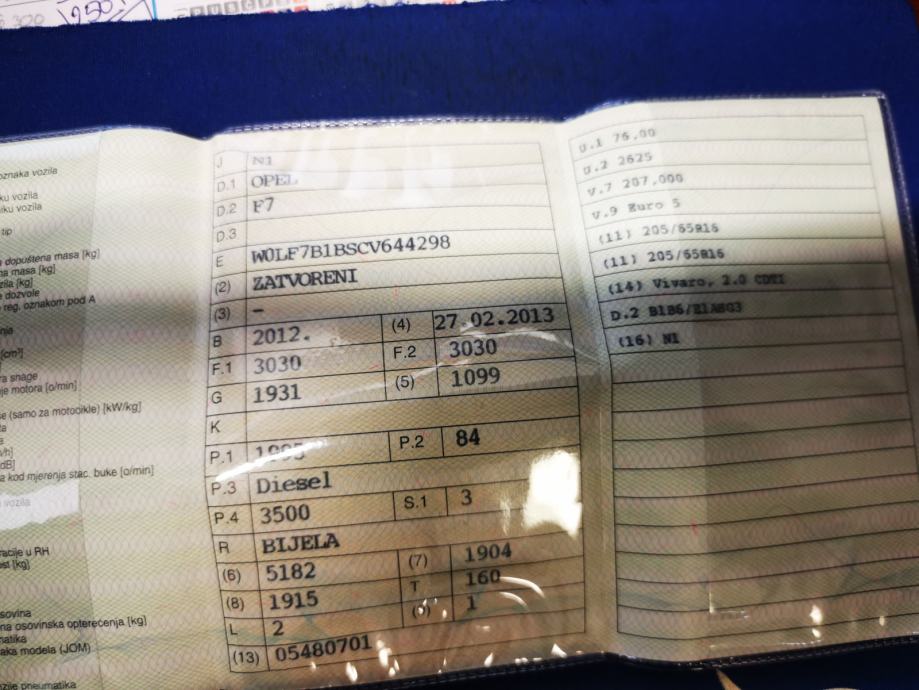 320
1250
oznaka vozila
ku vozila
iku vozila
tip
dopuštena masa [kg]
na masa [kg]
zila [kg]
e dozvole
reg. oznakom pod A
[cm³]
ra snage
je motora [o/min]
se (samo za motocikle) [kW/kg]
ta
a
v/h]
dB]
a kod mjerenja stac. buke [o/min]
vozila
racije u RH
ost [kg]
sovina
na osovinska opterećenja [kg]
matika
aka modela (JOM)
zije pneumatika
J N1
D.1 OPEL
D.2 F7
D.3
E W0LF7B1BSCV644298
(2) ZATVORENI
(3) –
B 2012. (4) 27.02.2013
F.1 3030 F.2 3030
G 1931 (5) 1099
K
P.1 1995 P.2 84
P.3 Diesel
P.4 3500 S.1 3
R BIJELA
(6) 5182 (7) 1904
(8) 1915 T 160
L 2 (9) 1
(13) 05480701
U.1 76,00
U.2 2625
V.7 207,000
V.9 Euro 5
(11) 205/65R16
(11) 205/65R16
(14) Vivaro, 2.0 CDTI
D.2 B1B6/
(16) N1